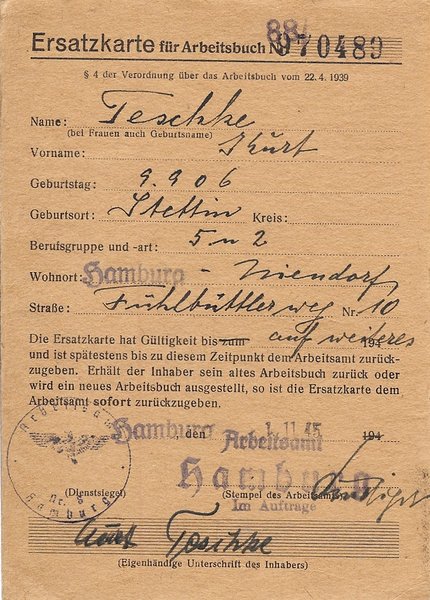 Ersatzkarte für Arbeitsbuch Nr. 88/970489
§ 4 der Verordnung über das Arbeitsbuch vom 22. 4. 1939
Name: Teschke
(bei Frauen auch Geburtsname)
Vorname: Kurt
Geburtstag: 9.9.06
Geburtsort: Stettin Kreis:
Berufsgruppe und -art: 5 u 2
Wohnort: Hamburg - Niendorf
Straße: Fuhlbüttler weg Nr. 10
Die Ersatzkarte hat Gültigkeit bis zum auf weiteres 194
und ist spätestens bis zu diesem Zeitpunkt dem Arbeitsamt zurück-
zugeben. Erhält der Inhaber sein altes Arbeitsbuch zurück oder
wird ein neues Arbeitsbuch ausgestellt, so ist die Ersatzkarte dem
Arbeitsamt sofort zurückzugeben.
Hamburg, den 1. 11. 45 194
Arbeitsamt
Hamburg
Im Auftrage
Arbeitsamt
Nr. 8
Hamburg
(Dienstsiegel) (Stempel des Arbeitsamts)
Kurt Teschke
(Eigenhändige Unterschrift des Inhabers)